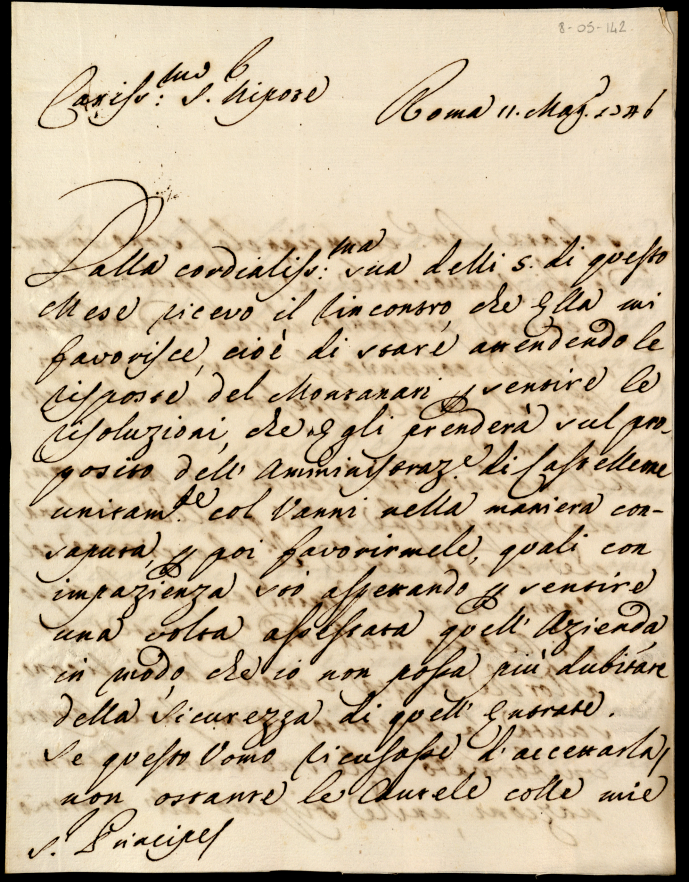 8-05-142.
Cariss:mo S. Nipote
Roma 11. Mag. 1746
Dalla cordialiss:ma sua delli 5. di questo
Mese ricevo il rincontro, che Ella mi
favorisce, cioè di stare attendendo le
risposte del Montanari p sentire le
risoluzioni, che Egli prenderà sul pro-
posito dell' Amministraz.e di
unitam.te col Vanni nella maniera con-
saputa, p poi favorirmele, quali con
impazienza stò aspettando p sentire
una volta assestata quell' Azienda
in modo che io non possa più dubitare
della Sicurezza di quell' Entrate.
Se questo Uomo ricusasse d'accettarla,
non ostante le Cautele colle mie
S. Principe